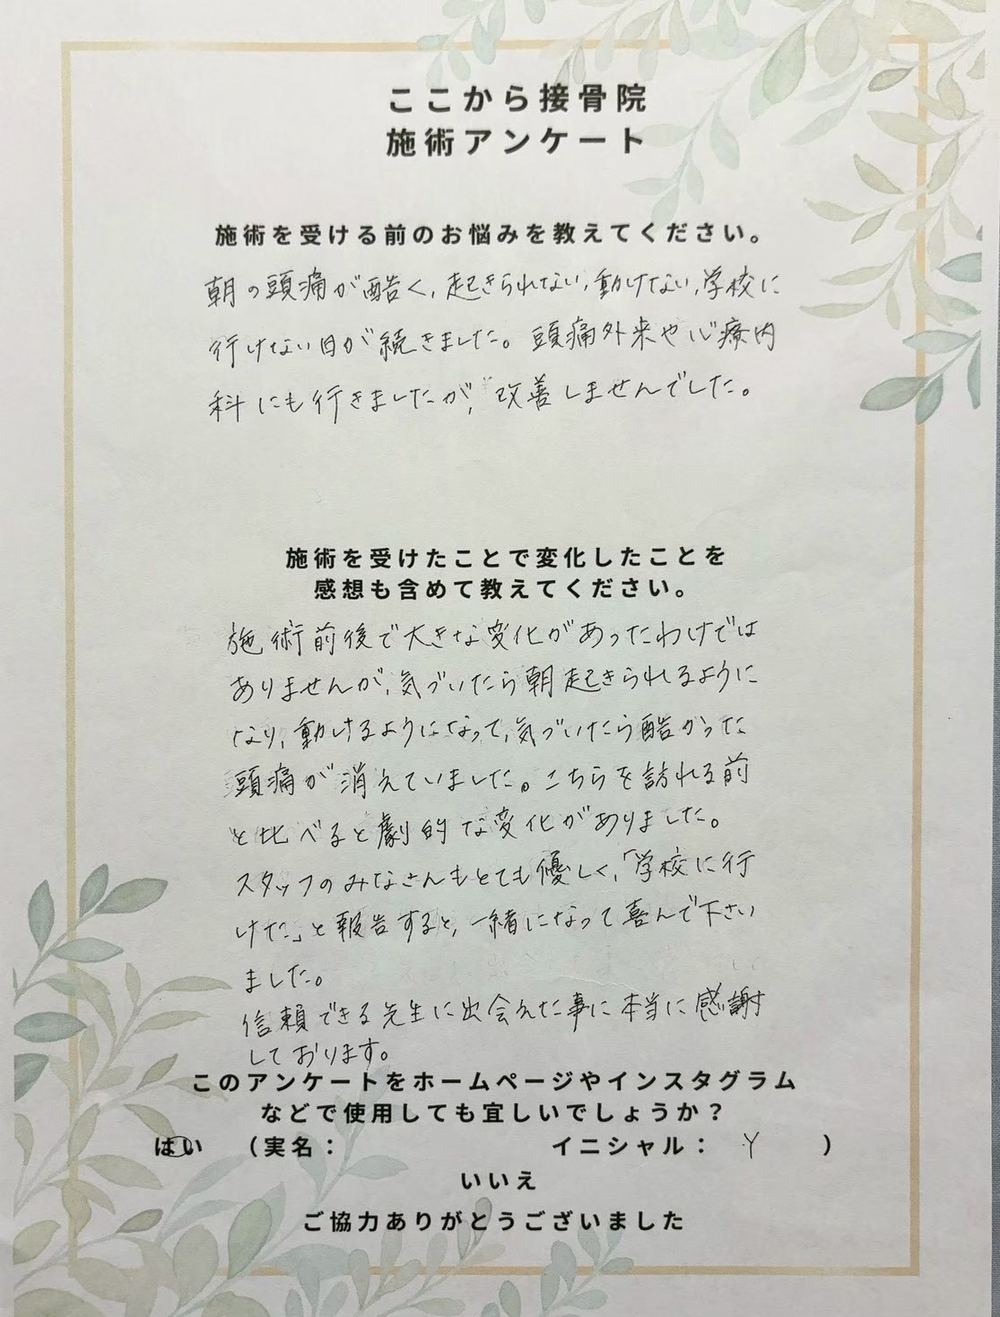 ここから接骨院
施術アンケート
施術を受ける前のお悩みを教えてください。
朝の頭痛が酷く、起きられない、動けない、学校に
行けない日が続きました。頭痛外来や心療内
科にも行きましたが、改善しませんでした。
施術を受けたことで変化したことを
感想も含めて教えてください。
施術前後で大きな変化があったわけでは
ありませんが、気づいたら朝起きられるように
なり、動けるようになって、気づいたら酷かった
頭痛が消えていました。こちらを訪れる前
と比べると劇的な変化がありました。
スタッフのみなさんもとても優しく、「学校に行
けた」と報告すると、一緒になって喜んで下さい
ました。
信頼できる先生に出会えた事に本当に感謝
しております。
このアンケートをホームページやインスタグラム
などで使用しても宜しいでしょうか？
はい （実名： イニシャル： Y ）
いいえ
ご協力ありがとうございました